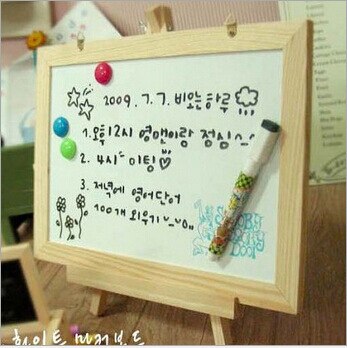 2009. 7. 7. 비오는하루
1. 오후12시 영맨이랑 점심^^
2. 4시 미팅♡
3. 저녁에 영어단어
100개 외우기
화이트 마커보드